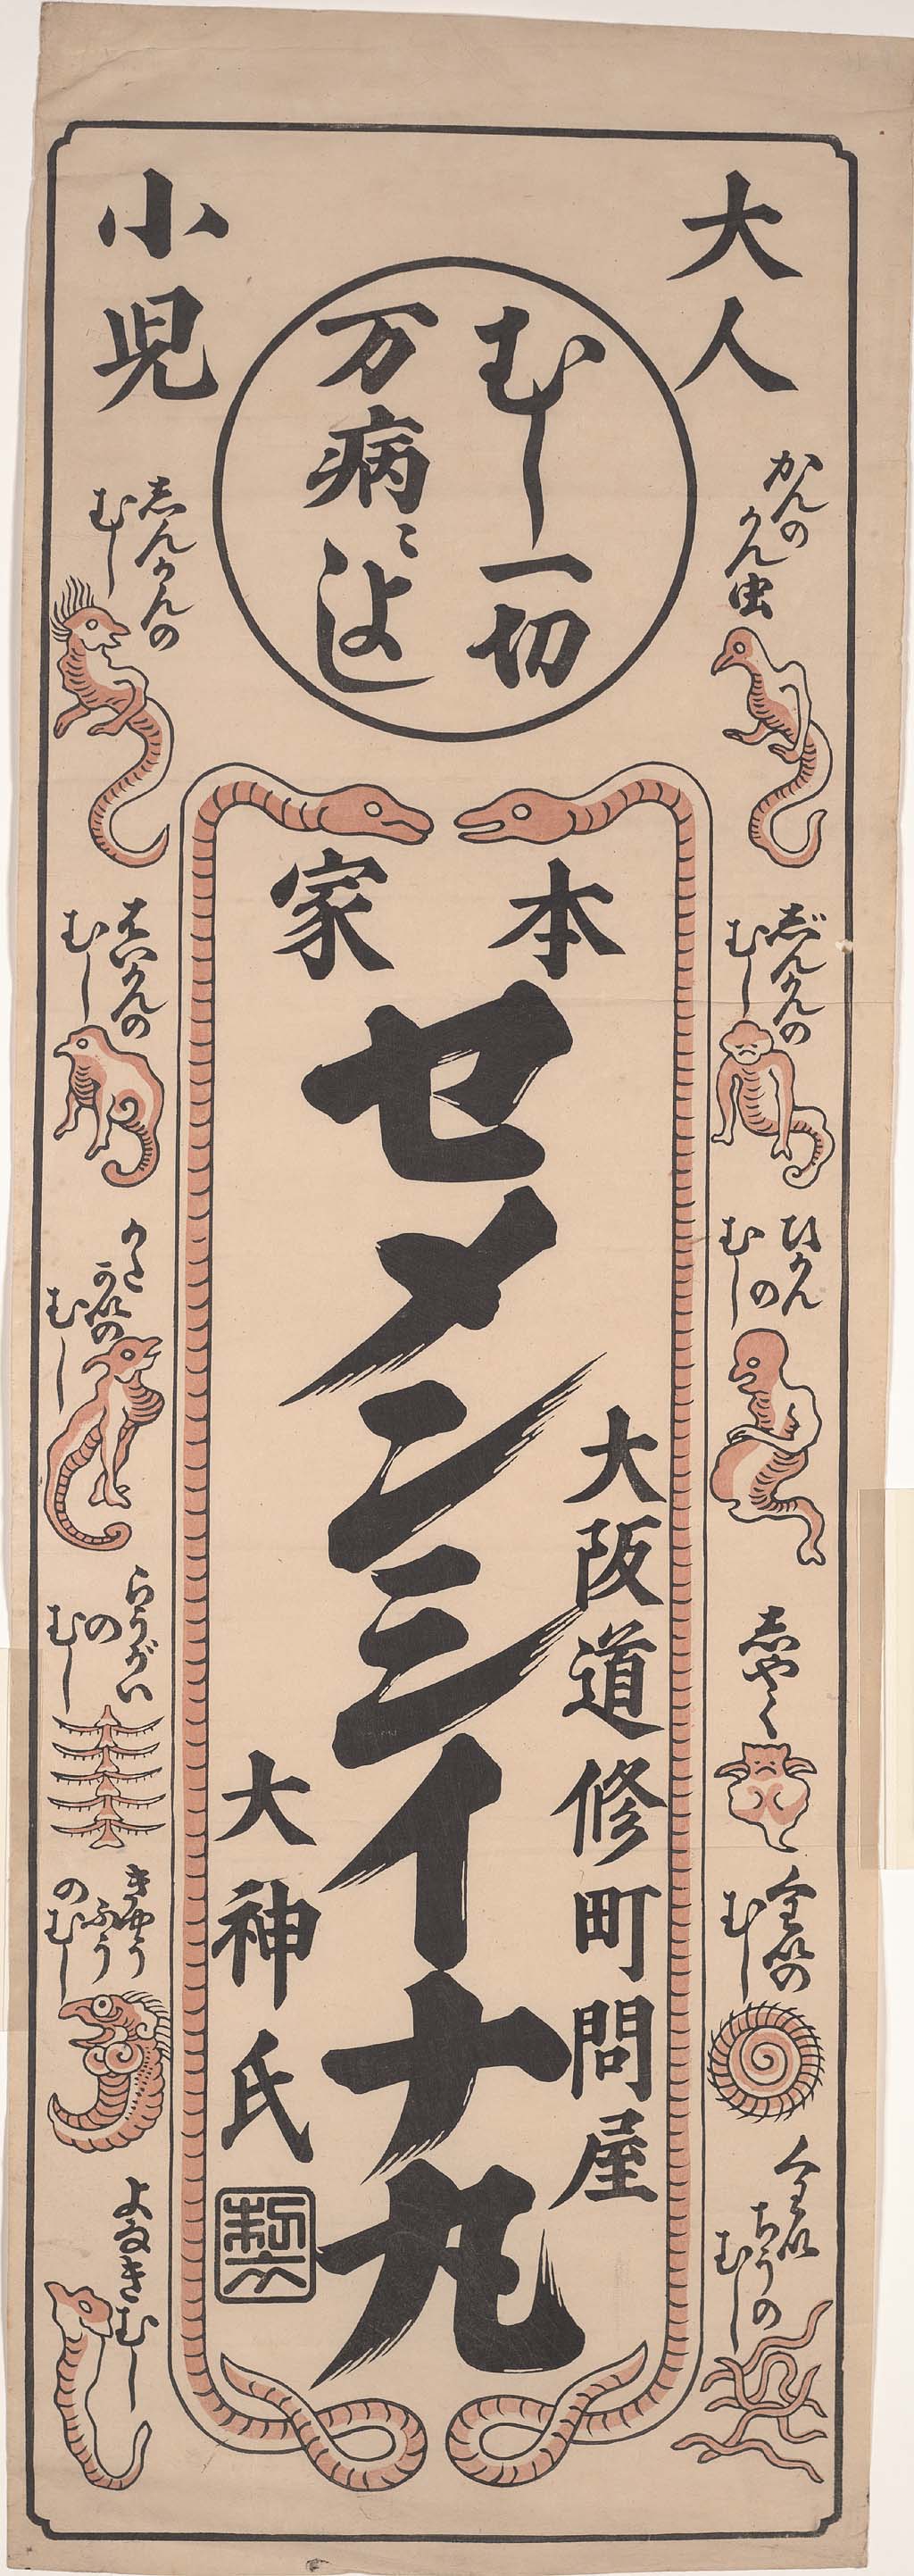 大人
小児
むし一切
万病によし
かんのかん虫
じんかんの
むし
ひかん
のむし
しやく
むし
ちうの
むし
しんかんの
むし
はいかんの
むし
むし
らうがい
の
むし
きやう
ふう
のむし
よなきむし
本家
セメンシイナ丸
大阪道修町問屋
大神氏
製